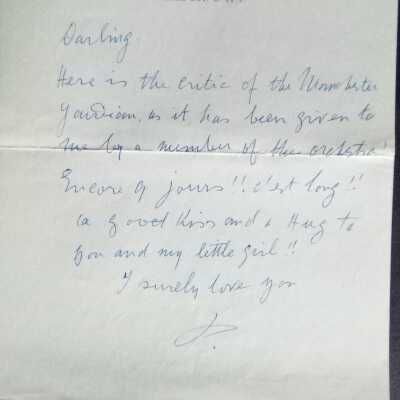 Darling.
Here is the critic of the Manchester
Gardian, as it has been given to
me by a member of the orchestra!
Encore 9 jours!! c'est long!!
a good Kiss and a Hug to
you and my little girl!!
I surely love you